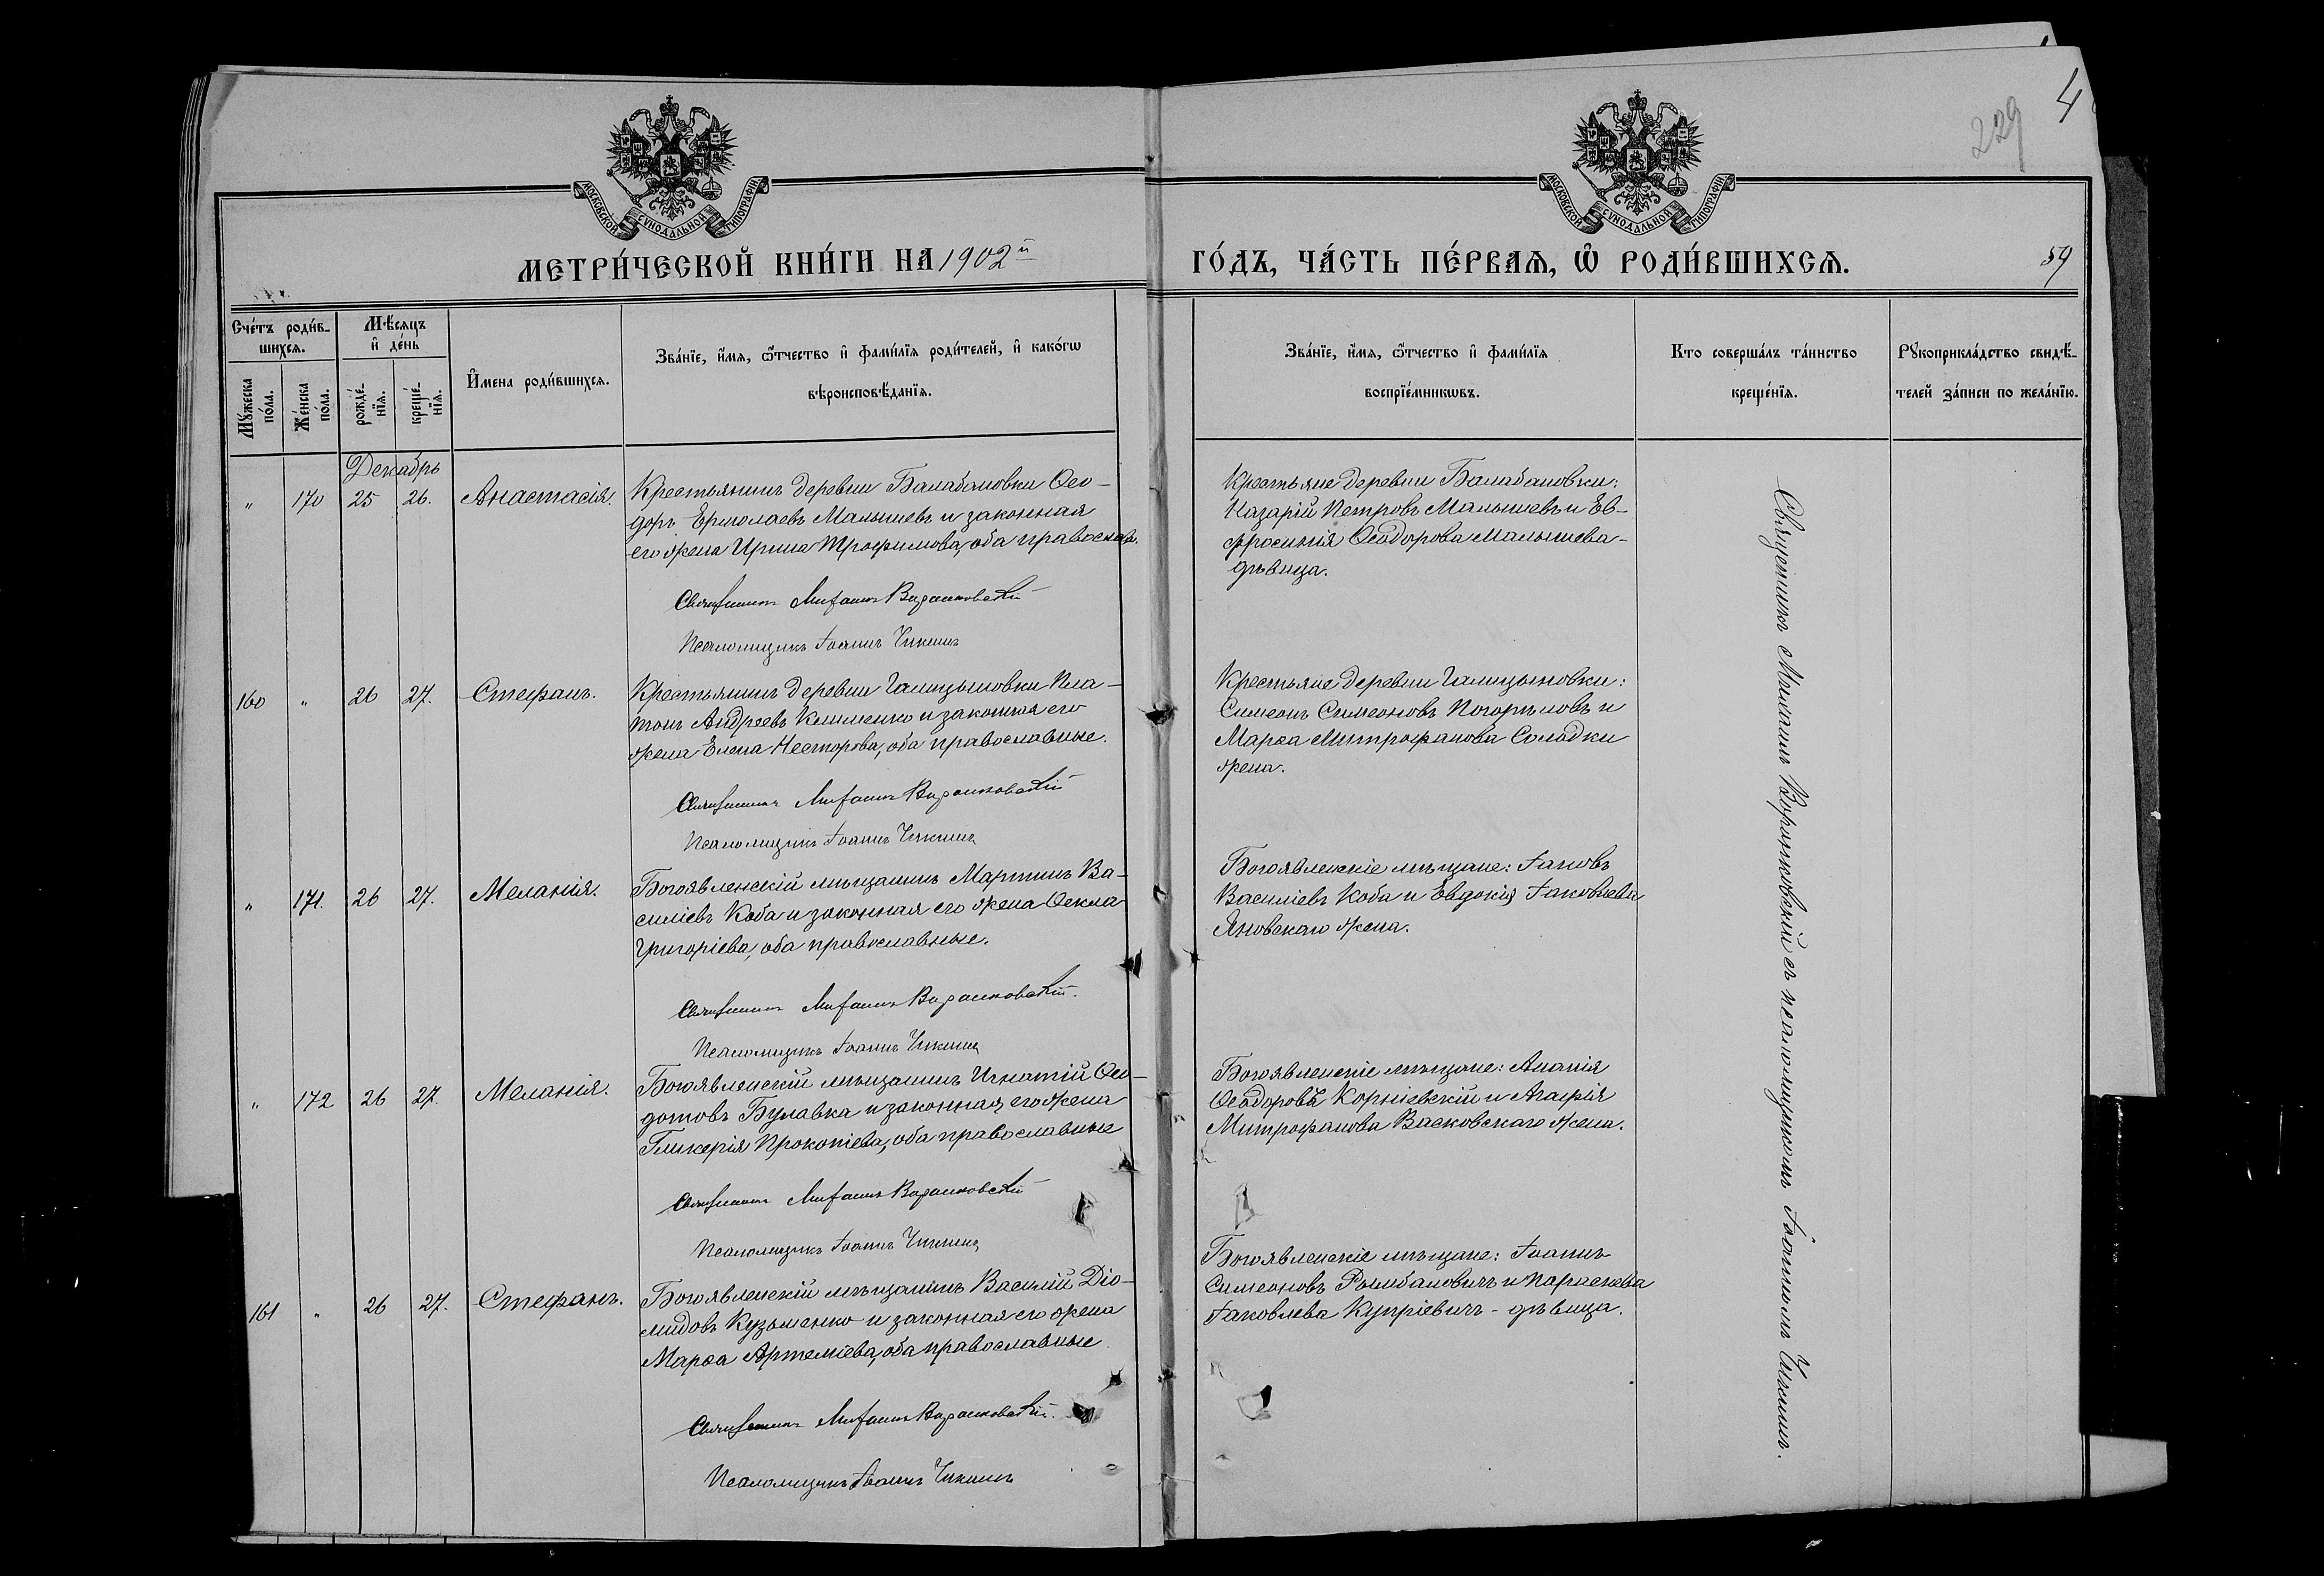 229
4
МОСКОВСКОЙ СУНОДАЛЬНОЙ ТИПОГРАФІИ
МОСКОВСКОЙ СУНОДАЛЬНОЙ ТИПОГРАФІИ
МЕТРИ́ЧЕСКОЙ КНИ́ГИ НА 1902й
ГО́ДЪ, ЧА́СТЬ ПЕ́РВАѦ, Ѡ҆ РОДИ́ВШИХСѦ.
59
Сче́тъ роди́в-
шихсѧ.
Мꙋ́жеска
по́ла.
Же́нска
по́ла.
Мѣ́сѧцъ
и҆ де́нь
рожде́-
нїѧ.
креще́-
нїѧ.
И҆мена роди́вшихсѧ.
Зва́нїе, и҆́мѧ, ѻ҆́тчество и҆ фами́лїѧ роди́телей, и҆ како́гѡ
вѣроисповѣ́данїѧ.
Зва́нїе, и҆́мѧ, ѻ҆́тчество и҆ фами́лїѧ
воспрїе́мникѡвъ.
Кто соверша́лъ та́инство
креще́нїѧ.
Рꙋкоприкла́дство свидѣ́-
телей за́писи по жела́нїю.
Декабрь
" 170 25 26. Анастасія.
Крестьянинъ деревни Балабановки Ѳео-
доръ Ермолаевъ Малышевъ и законная
его жена Ирина Трофимова, оба православ.
Священникъ Михаилъ
Псаломщикъ Іоаннъ Чикинъ
Крестьяне деревни Балабановки:
Назарій Петровъ Малышевъ и Ев-
фросинія Ѳеодорова Малышева-
дѣвица.
160 " 26 27. Стефанъ.
Крестьянинъ деревни Галицыновки Пла-
тонъ Андреевъ Клименко и законная его
жена Елена Несторова, оба православные.
Священникъ Михаилъ
Псаломщикъ Іоаннъ Чикинъ
Крестьяне деревни Галицыновки:
Симеонъ Симеоновъ Погорѣловъ и
Марѳа Митрофанова Солодки
жена.
" 171. 26 27. Меланія.
Богоявленскій мѣщанинъ Мартинъ Ва-
силіевъ Коба и законная его жена Ѳекла
Григоріева, оба православные.
Священникъ Михаилъ
Псаломщикъ Іоаннъ Чикинъ
Богоявленскіе мѣщане: Іаковъ
Василіевъ Коба и Евдокія Іаковлева
Яновскаго жена.
" 172 26 27. Меланія.
Богоявленскій мѣщанинъ Игнатій Ѳео-
дотовъ Булавка и законная его жена
Гликерія Прокопіева, оба православные
Священникъ Михаилъ
Псаломщикъ Іоаннъ Чикинъ
Богоявленскіе мѣщане: Ананія
Ѳеодоровъ Корніевскій и Агафія
Митрофанова Васковскаго жена.
161 " 26 27. Стефанъ.
Богоявленскій мѣщанинъ Василій Діо-
мидовъ Кузьменко и законная его жена
Марѳа Артеміева, оба православные
Священникъ Михаилъ
Псаломщикъ Іоаннъ Чикинъ
Богоявленскіе мѣщане: Іоаннъ
Симеоновъ Рымбаловичъ и Параскева
Іаковлева Купріевичъ - дѣвица.
Священникъ Михаилъ съ псаломщикомъ Іоанномъ Чикинымъ.